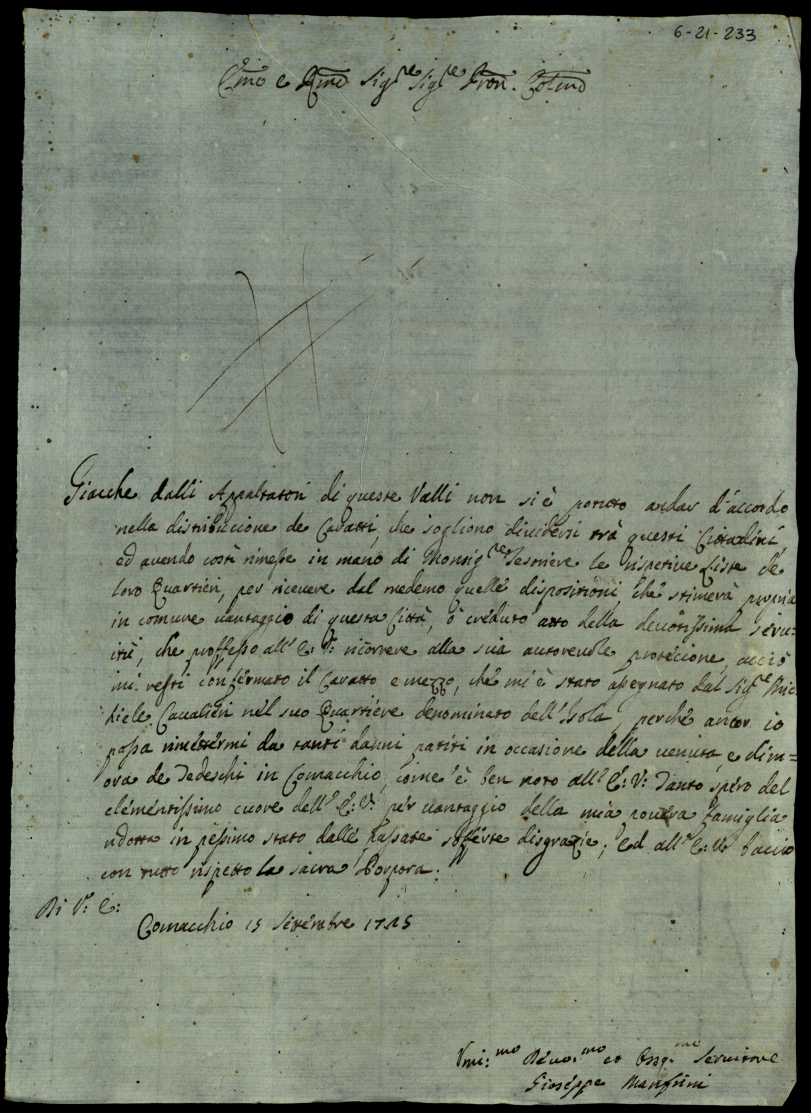 6-21-233
E.mo e R.mo Sig.re Sig.re Pron. Col.mo
Giacche dalli Appaltatori di queste Valli non si è potuto andar d'accordo
nella distribuzione de Cavatti, che sogliono dividersi trà questi Cittadini
ed avendo così rimesse in mano di Monsig.re Tesoriere le rispetive Liste de
loro Quartieri, per ricevere dal medemo quelle disposizioni, che stimerà proprie
in comune vantaggio di questa Città, ò creduto atto della devotissima servi=
itù, che proffesso all' E: V: ricorrere alla sua autorevole protezione, acciò
mi resti confermato il Cavatto e mezzo, che mi è stato assegnato dal Sig.re Mic
hiele Cavalieri nel suo Quartiere denominato dell'Isola, perchè ancor io
possa rimettermi da tanti danni patiti in occasione della venuta, e dim=
ora de Tedeschi in Comacchio, come è ben noto all' E: V: Tanto spero del
clementissimo cuore dell' E: V: per vantaggio della mia povera famiglia
ridotta in pessimo stato dalle passate sofferte disgrazie; Ed all' E: V: bacio
con tutto rispetto la sacra Porpora.
Di V: E:
Comacchio 15 Settembre 1725
Umi:mo Devo:mo et Ossq:mo Servitore
Gioseppe Manfrini